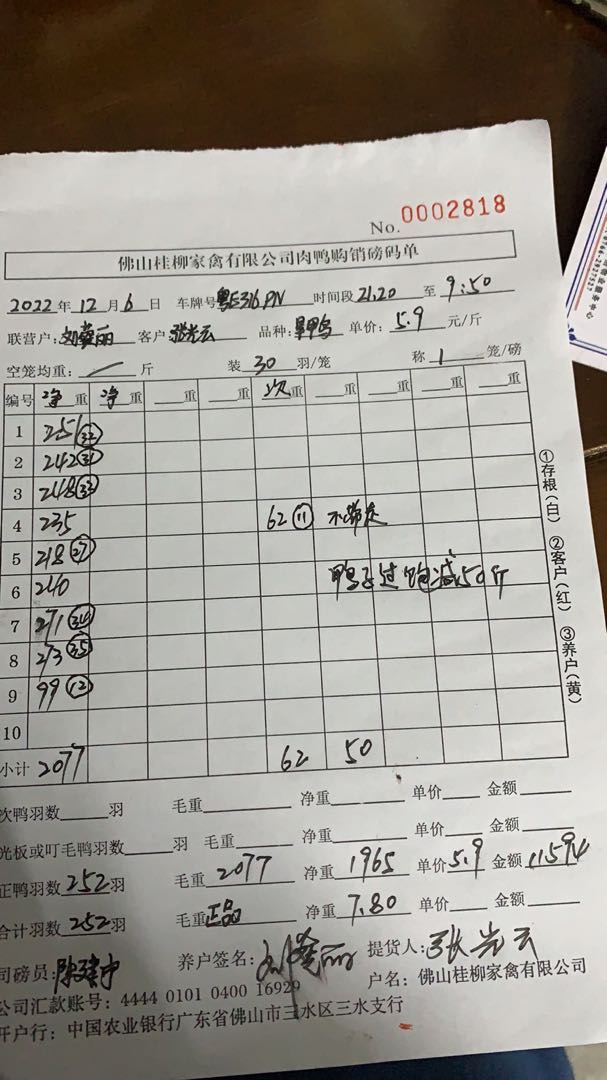 No. 0002818
佛山桂柳家禽有限公司肉鸭购销磅码单
2022年12月6日 车牌号粤E316PN 时间段21.20至9:50
联营户: 刘 丽 客户张光云 品种: 单价: 5.9元/斤
空笼均重: 斤 装30羽/笼 称1笼/磅
编号 净重 净重 重 重 次重 重 重 重
1 251 (32)
2 242 (31)
3 248 (33)
4 235 62 (11) 不带走
5 218 (27)
6 240 鸭子过饱减50斤
7 271 (34)
8 273 (35)
9 99 (12)
10
小计 2077 62 50
①存根(白) ②客户(红) ③养户(黄)
次鸭羽数 羽 毛重 净重 单价 金额
光板或叮毛鸭羽数 羽 毛重 净重 单价 金额
正鸭羽数252羽 毛重2077 净重1965 单价5.9 金额11594
合计羽数252羽 毛重正品 净重7.80 单价 金额
司磅员: 陈 养户签名: 刘 丽 提货人: 张光云
公司汇款账号: 4444 0101 0400 16929 户名: 佛山桂柳家禽有限公司
开户行: 中国农业银行广东省佛山市三水区三水支行